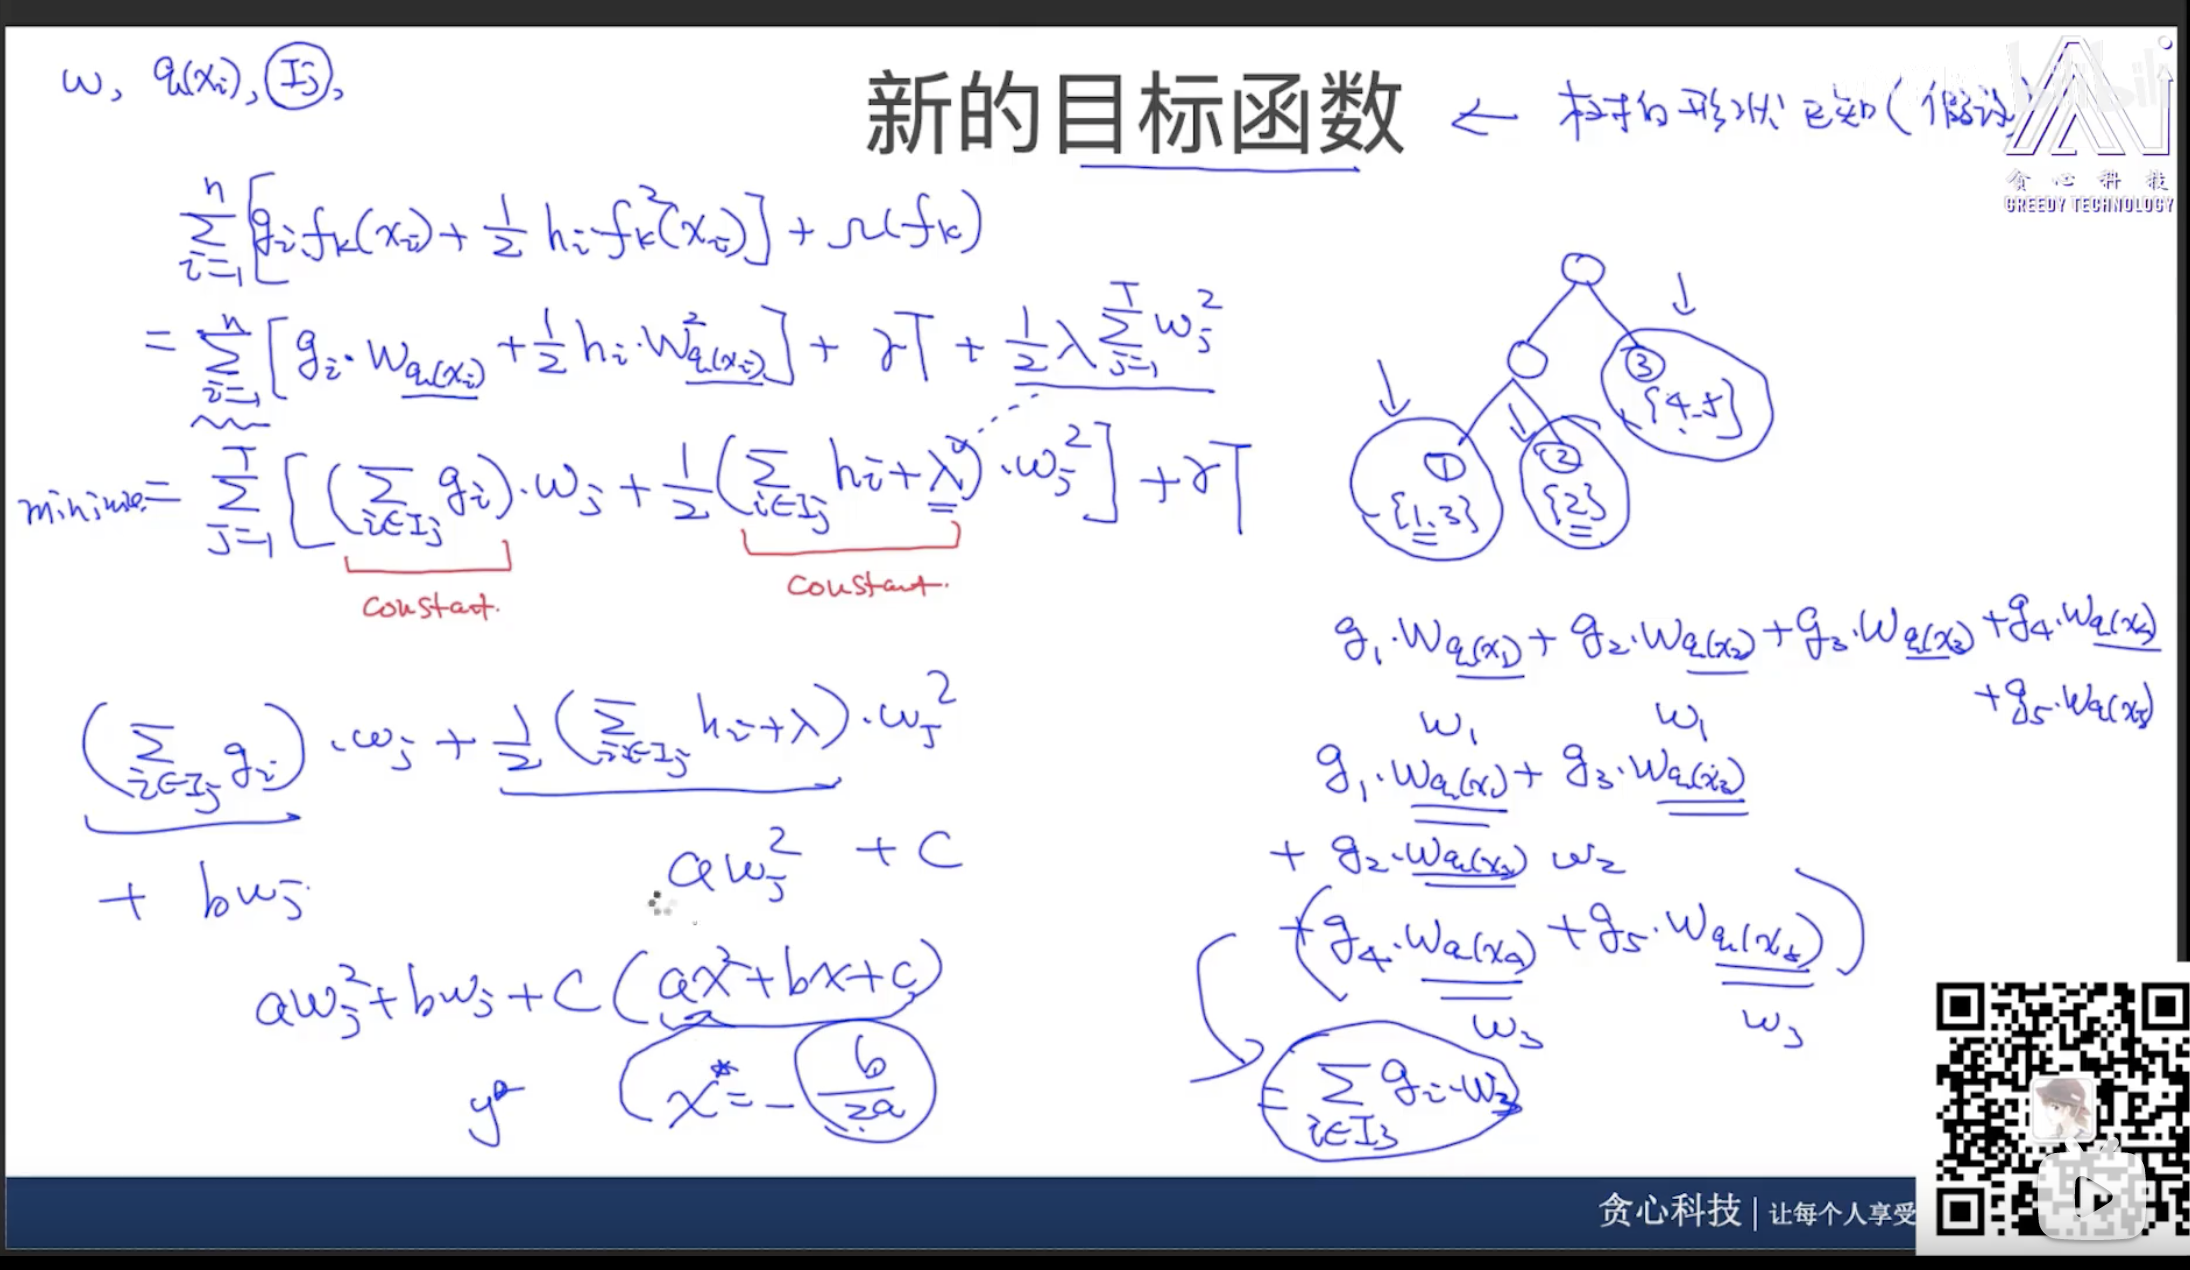 w, q(xi), Ij,
新的目标函数 ← 树的形状已知(假设)
贪心科技
GREEDY TECHNOLOGY
n∑i=1 [gi fk(xi) + 1/2 hi fk²(xi)] + Ω(fk)
= n∑i=1 [gi · wq(xi) + 1/2 hi · w²q(xi)] + γT + 1/2 λ T∑j=1 wj²
minimize = T∑j=1 [(∑i∈Ij gi) · wj + 1/2 (∑i∈Ij hi + λ) · wj²] + γT
constant.
constant.
(∑i∈Ij gi) · wj + 1/2 (∑i∈Ij hi + λ) · wj²
awj² + C
+ bwj
awj² + bwj + C (ax² + bx + c)
y* x* = - b/2a
3
{4,5}
1
{1,3}
2
{2}
g1 · wq(x1) + g2 · wq(x2) + g3 · wq(x3) + g4 · wq(x4)
+ g5 · wq(x5)
w1 w1
g1 · wq(x1) + g3 · wq(x3)
+ g2 · wq(x2) w2
+ (g4 · wq(x4) + g5 · wq(x5))
w3 w3
= ∑i∈I3 gi · w3
贪心科技 | 让每个人享受